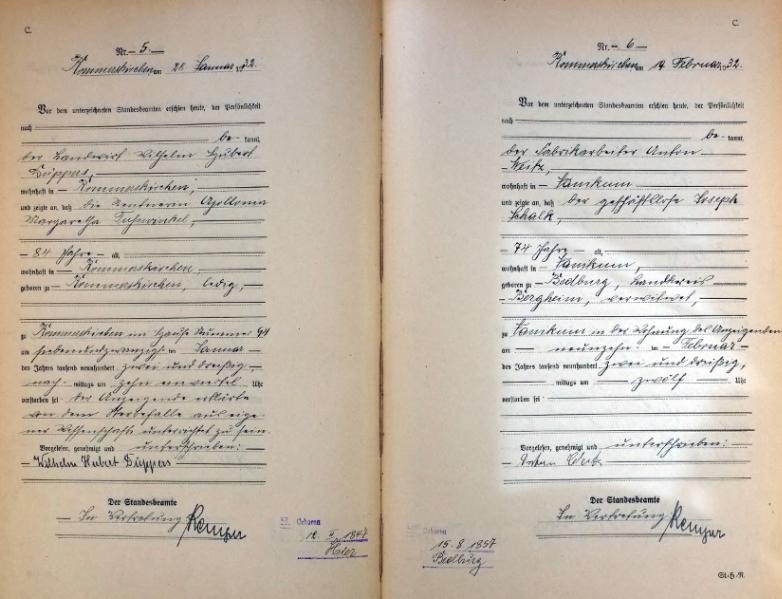 C.
Nr. 5.
Rommerskirchen am 28. Januar 1932.
Vor dem unterzeichneten Standesbeamten erschien heute, der Persönlichkeit
nach
be- kannt,
der Landwirt Wilhelm Hubert
Düppers,
wohnhaft in Rommerskirchen,
und zeigte an, daß die Rentnerin Apollonia
Margaretha
84 Jahre alt,
wohnhaft in Rommerskirchen,
geboren zu Rommerskirchen, ledig,
zu Rommerskirchen im Hause Nummer 44
am siebenundzwanzigsten Januar
des Jahres tausend neunhundert zwei und dreißig
nach mittags um zehn einviertel Uhr
verstorben sei. Der Anzeigende erklärte
von dem Sterbefalle aus eige-
ner Wissenschaft unterrichtet zu sein.
Vorgelesen, genehmigt und unterschrieben:
Wilhelm Hubert Düppers
Der Standesbeamte
In Vertretung
Geboren
1847
C.
Nr. 6
Rommerskirchen am Februar 1932.
Vor dem unterzeichneten Standesbeamten erschien heute, der Persönlichkeit
nach
be- kannt,
der Fabrikarbeiter Anton
wohnhaft in Vanikum
und zeigte an, daß der geschäftslose Joseph
Schalk,
74 Jahre alt,
wohnhaft in Vanikum,
geboren zu Bedburg, Landkreis
Bergheim, verwitwet,
zu Vanikum in der Wohnung des Anzeigenden
am neunzehn ten Februar
des Jahres tausend neunhundert zwei und dreißig,
mittags um zwölf Uhr
verstorben sei.
Vorgelesen, genehmigt und unterschrieben:
Anton
Der Standesbeamte
In Vertretung
Geboren
15.8.1857
Bedburg
St.-H.-R.